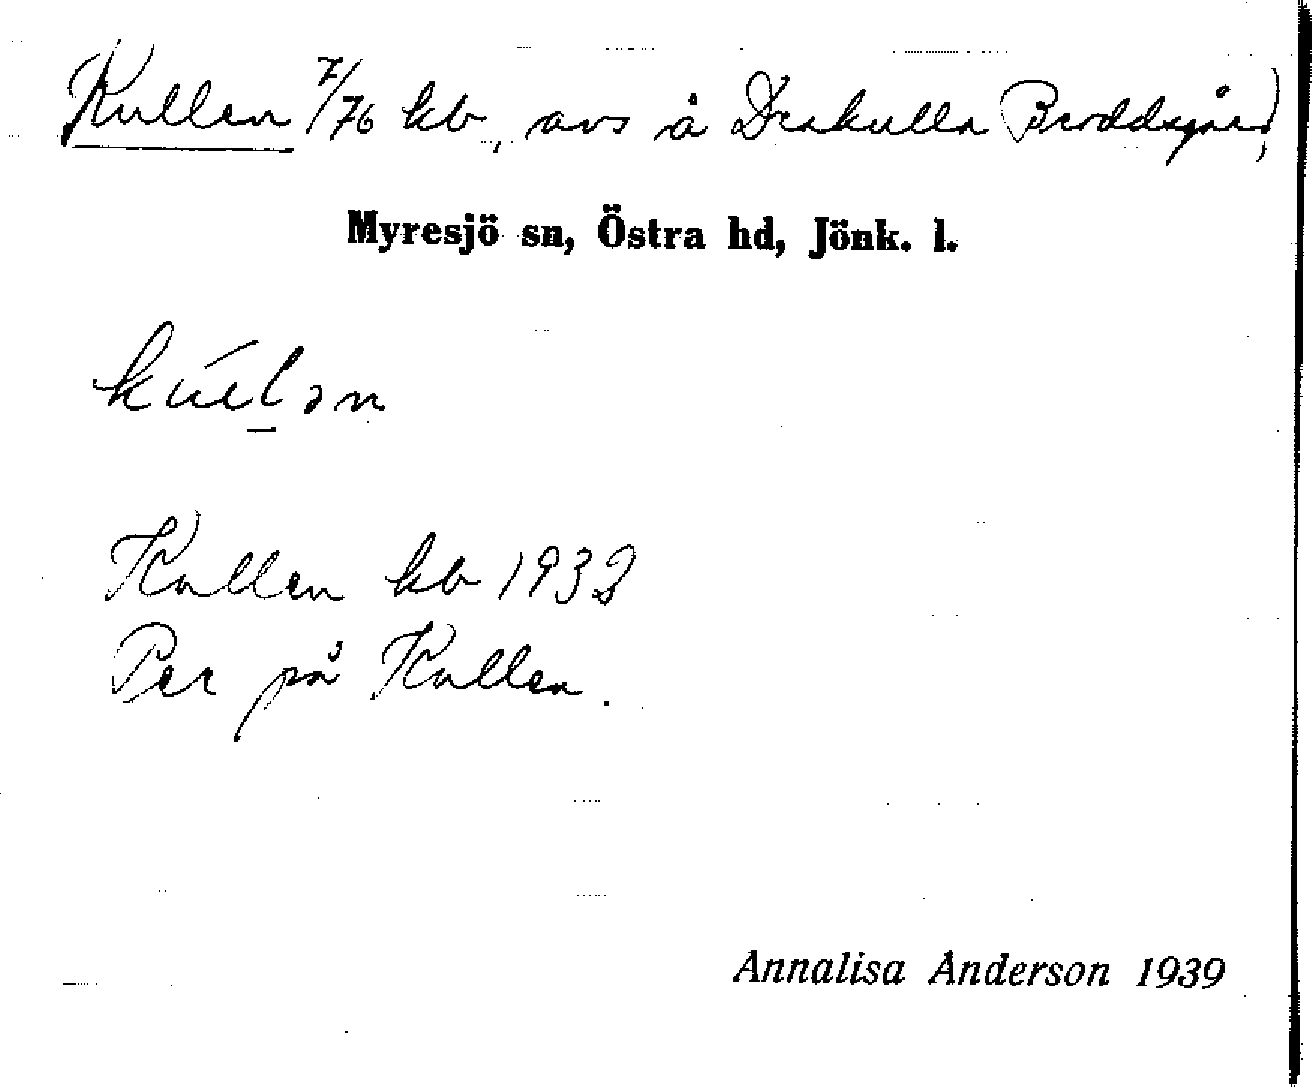 Kullen 7/76 kb, avs å Drakulla Broddsgård,
Myresjö sn, Östra hd, Jönk. l.
Kullen kb 1932
Per på Kullen.
Annalisa Anderson 1939